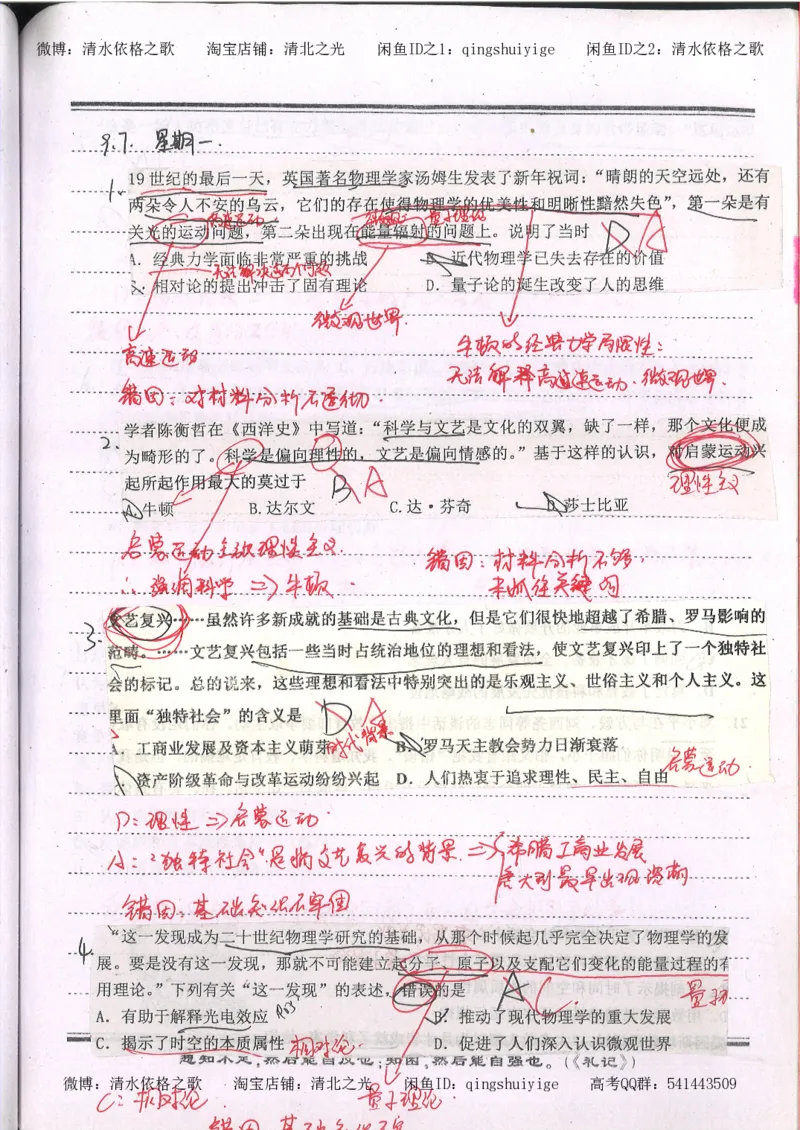 微博：清水依格之歌 淘宝店铺：清北之光 闲鱼ID之1：qingshuiyige 闲鱼ID之2：清水依格之歌
9.7. 星期一.
1. 19世纪的最后一天，英国著名物理学家汤姆生发表了新年祝词：“晴朗的天空远处，还有
两朵令人不安的乌云，它们的存在使得物理学的优美性和明晰性黯然失色”，第一朵是有
高速运动 量子理论
关光的运动问题，第二朵出现在能量辐射的问题上。说明了当时 D A
A．经典力学面临非常严重的挑战 B．近代物理学已失去存在的价值
无法解决这两个问题
C．相对论的提出冲击了固有理论 D．量子论的诞生改变了人的思维
微观世界.
高速运动
牛顿的经典力学局限性：
无法解释高速运动.微观世界.
错因：对材料分析不透彻.
2. 学者陈衡哲在《西洋史》中写道：“科学与文艺是文化的双翼，缺了一样，那个文化便成
为畸形的了。科学是偏向理性的，文艺是偏向情感的。”基于这样的认识，对启蒙运动兴
起所起作用最大的莫过于 B A 理性主义
A.牛顿 B.达尔文 C.达·芬奇 D.莎士比亚
启蒙运动主张理性主义.
∴ 强调科学 => 牛顿.
错因：材料分析不够.
未抓住关键词
3. 文艺复兴……虽然许多新成就的基础是古典文化，但是它们很快地超越了希腊、罗马影响的
范畴。……文艺复兴包括一些当时占统治地位的理想和看法，使文艺复兴印上了一个独特社
会的标记。总的说来，这些理想和看法中特别突出的是乐观主义、世俗主义和个人主义。这
里面“独特社会”的含义是 D A
A．工商业发展及资本主义萌芽 时代背景 B．罗马天主教会势力日渐衰落
C．资产阶级革命与改革运动纷纷兴起 D．人们热衷于追求理性、民主、自由 启蒙运动.
D：理性 => 启蒙运动.
A：“独特社会”是指文艺复兴的背景. => 工商业发展
意大利最早出现资萌
错因：基础知识不牢固
4. “这一发现成为二十世纪物理学研究的基础，从那个时候起几乎完全决定了物理学的发
展。要是没有这一发现，那就不可能建立起分子、原子以及支配它们变化的能量过程的有
用理论。”下列有关“这一发现”的表述，错误的是 A C
A．有助于解释光电效应 B．推动了现代物理学的重大发展
C．揭示了时空的本质属性 相对论 D．促进了人们深入认识微观世界
然后能自反也；知困，然后能自强也。（《礼记》）
微博：清水依格之歌 淘宝店铺：清北之光 闲鱼ID：qingshuiyige 高考QQ群：541443509
C：相对论. 量子理论.